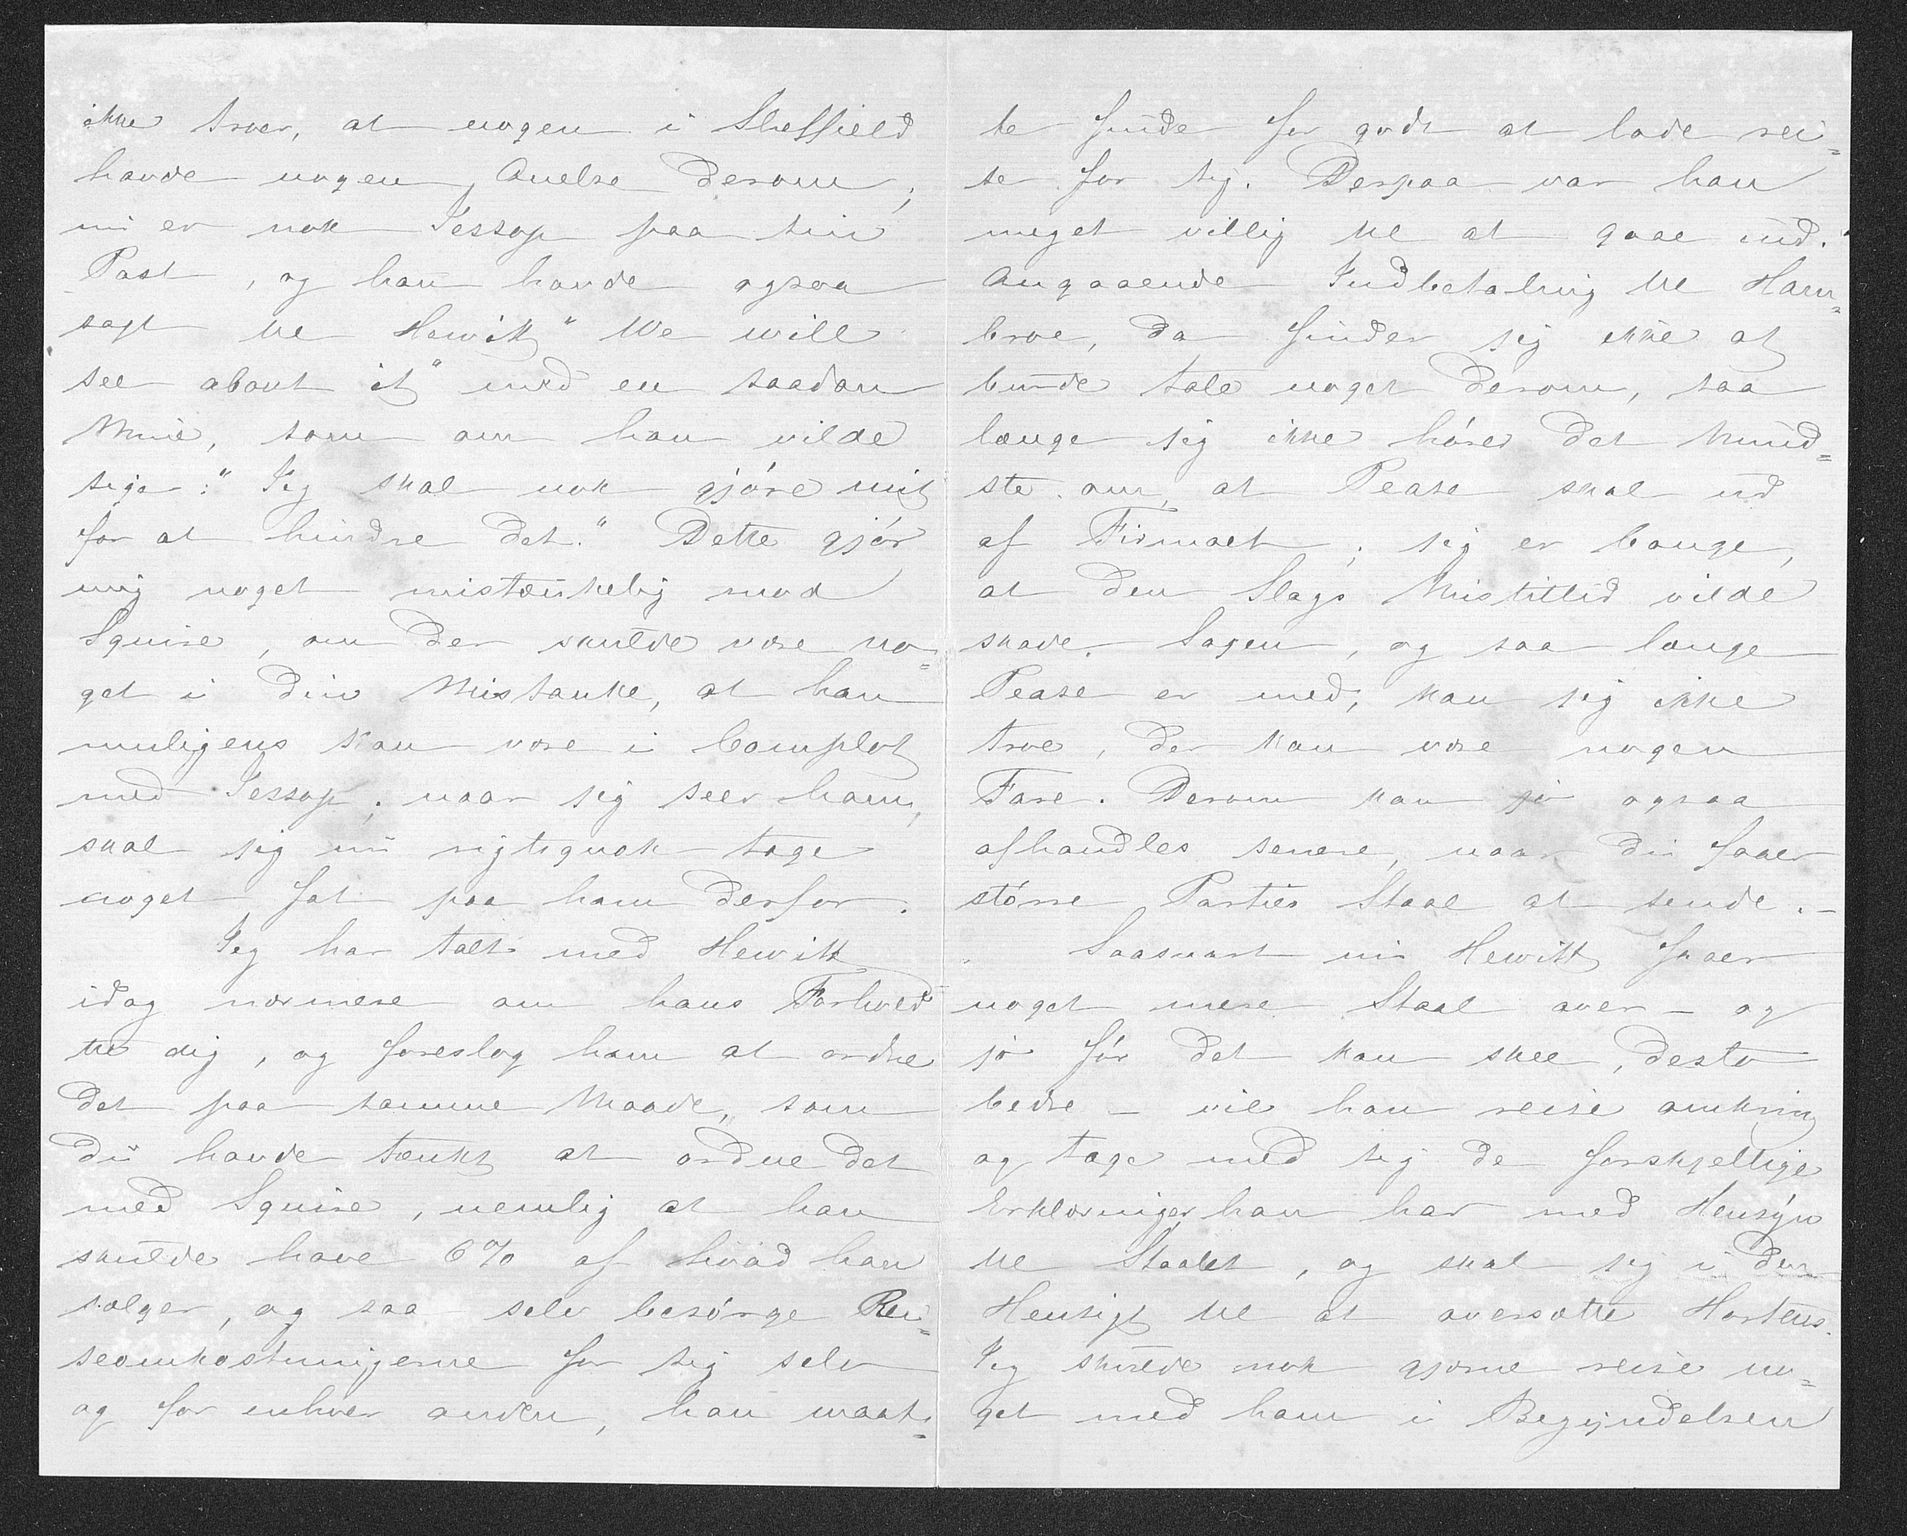 ikke troer, at nogen i Sheffield
havde nogen Anelse derom;
nu er nok Jessop paa sin
Post, og han havde ogsaa
sagt til Hewitt "We will
see about it" med en saadan
Mine, som om han vilde
sige: "Jeg skal nok gjøre mit
for at hindre det." Dette gjør
mig noget mistænkelig mod
Squire, om der skulde være no=
get i din Mistanke, at han
muligens kan være i Complot
med Jessop; naar jeg seer ham,
skal jeg nu rigtignok tage
noget fat paa ham derfor.
Jeg har talt med Hewitt
idag nærmere om hans Forhold
til dig, og foreslog ham at ordne
det paa samme Maade, som
du havde tænkt at ordne det
med Squire, nemlig at han
skulde have 6% af hvad han
sælger, og saa selv besørge Rei=
seomkostningerne for sig selv
og for enhver anden, han maat=
te finde for godt at lade rei=
se for sig. Derpaa var han
meget villig til at gaae ind.
Angaaende Indbetaling til Ham=
broe, da finder jeg ikke at
burde tale noget derom, saa
længe jeg ikke hører det Mind=
ste om, at Pease skal ud
af Firmaet; jeg er bange,
at den Slags Mistillid vilde
skade Sagen, og saa længe
Pease er med, kan jeg ikke
troe, der kan være nogen
Fare. Derom kan jo ogsaa
afhandles senere, naar du faaer
større Partier Staal at sende. –
Saasnart nu Hewitt faaer
noget mere Staal over – og
jo før det kan skee, desto
bedre – vil han reise omkring
og tage med sig de forskjellige
Erklæringer han har med Hensyn
til Staalet, og skal jeg i den
Hensigt til at oversætte Hortens.
Jeg skulde nok gjerne reise no=
get med ham i Begyndelsen